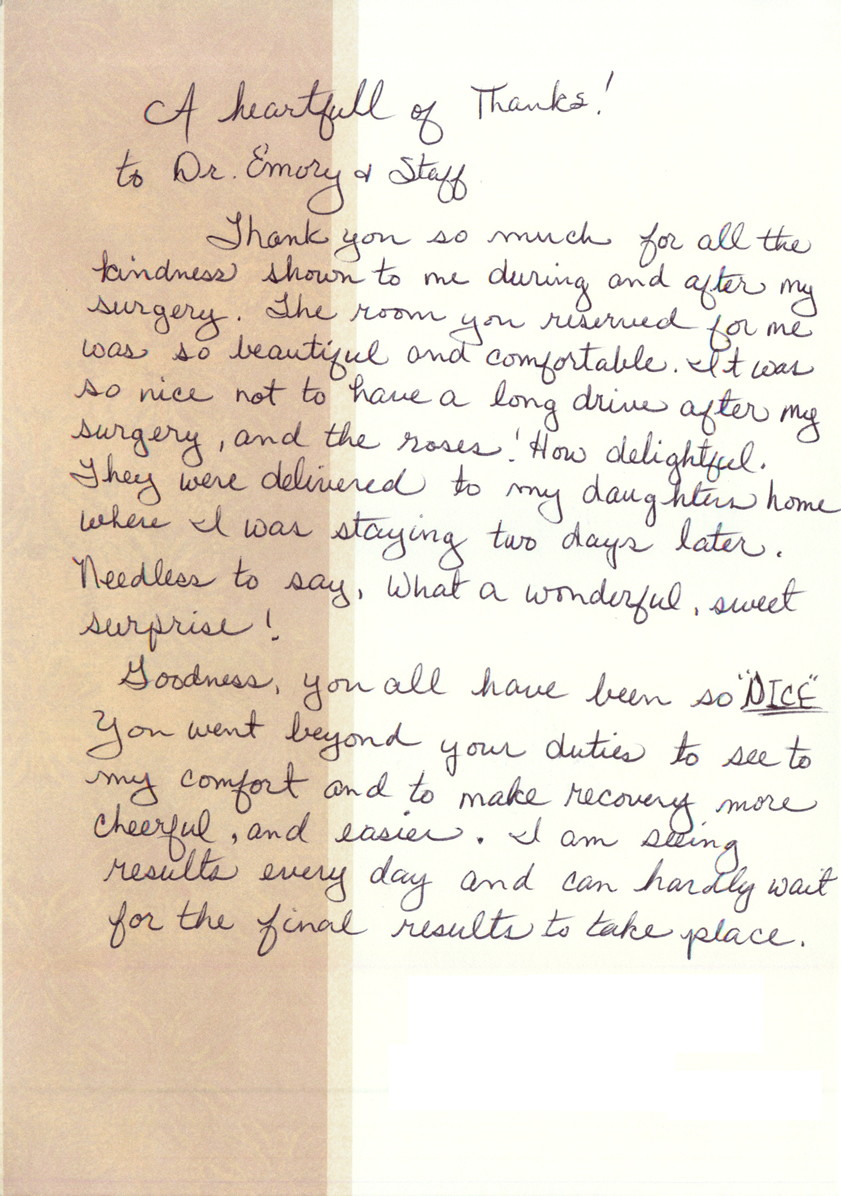 A heartfull of Thanks!
to Dr. Emory & Staff
Thank you so much for all the
kindness shown to me during and after my
surgery. The room you reserved for me
was so beautiful and comfortable. It was
so nice not to have a long drive after my
surgery, and the roses! How delightful.
They were delivered to my daughters home
where I was staying two days later.
Needless to say, What a wonderful, sweet
surprise!
Goodness, you all have been so "NICE"
You went beyond your duties to see to
my comfort and to make recovery more
cheerful, and easier. I am seeing
results every day and can hardly wait
for the final results to take place.